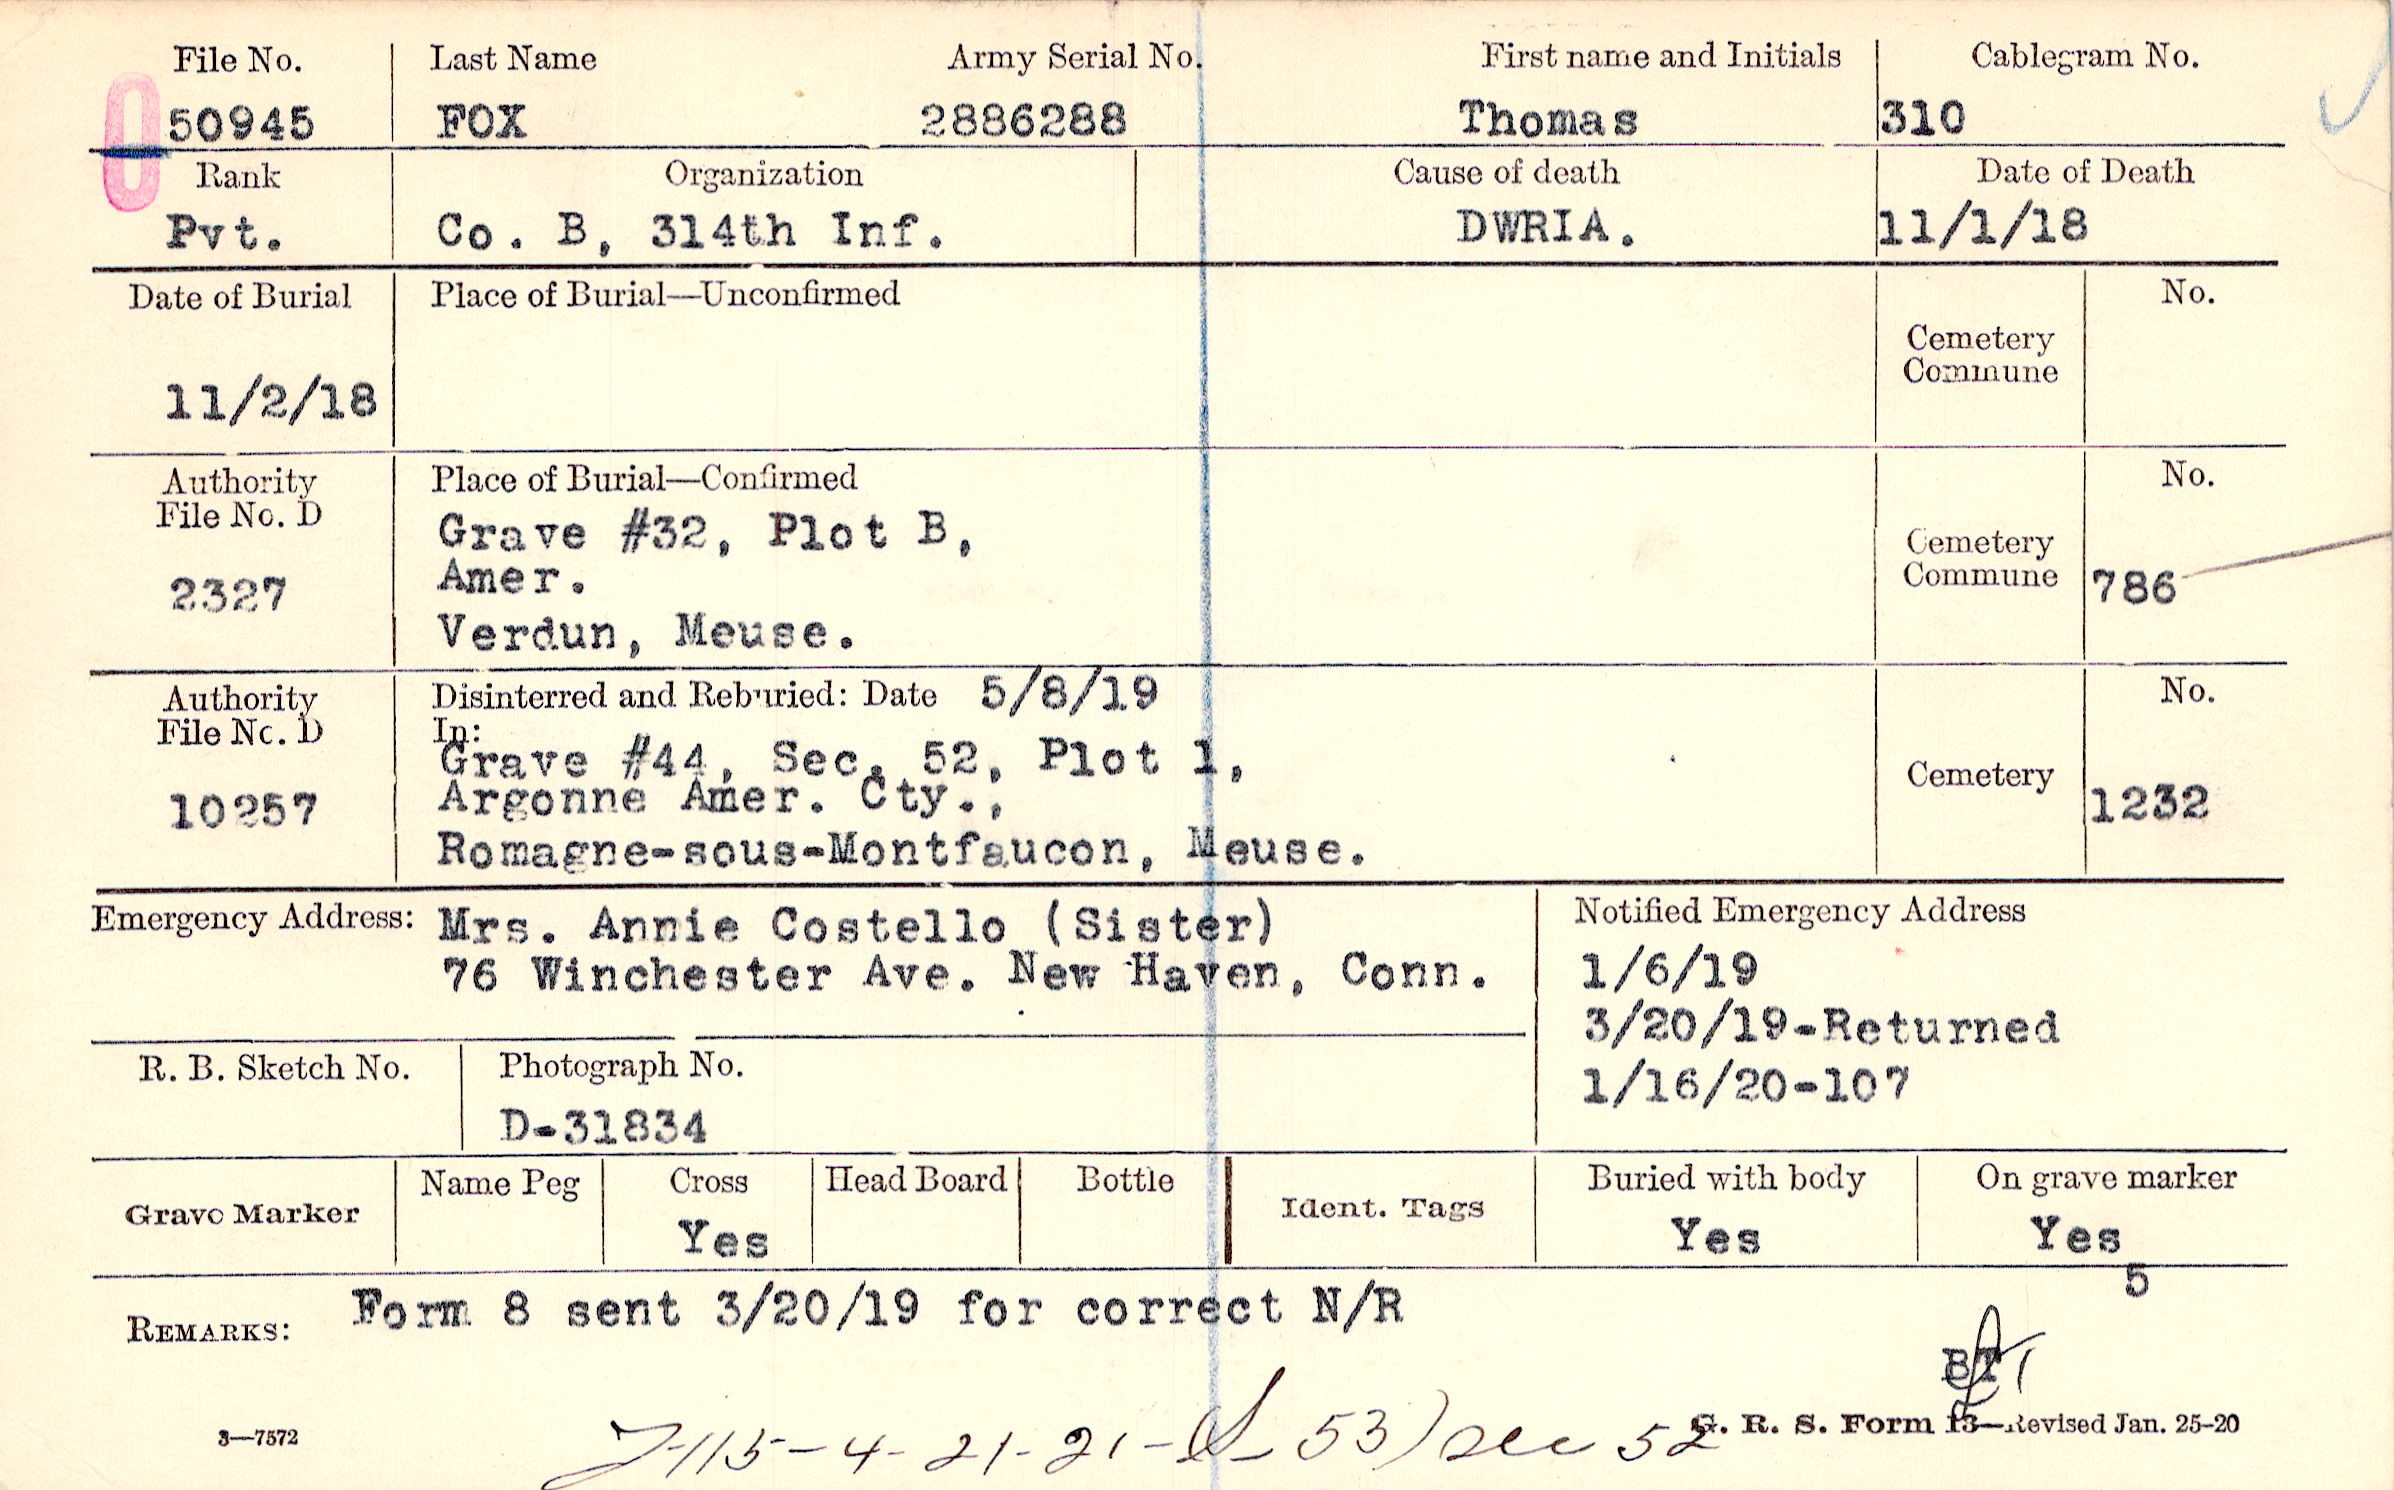 File No. Last Name Army Serial No. First name and Initials Cablegram No.
50945 FOX 2886288 Thomas 310
Rank Organization Cause of death Date of Death
Pvt. Co. B, 314th Inf. DWRIA. 11/1/18
Date of Burial Place of Burial—Unconfirmed No.
Cemetery
Commune
11/2/18
Authority Place of Burial—Confirmed No.
File No. D
Grave #32, Plot B,
Cemetery
Amer. Commune 786
2327
Verdun, Meuse.
Authority Disinterred and Reburied: Date 5/8/19 No.
File No. D In:
Grave #44, Sec. 52, Plot 1,
Cemetery
10257 Argonne Amer. Cty., 1232
Romagne-sous-Montfaucon, Meuse.
Emergency Address: Mrs. Annie Costello (Sister) Notified Emergency Address
76 Winchester Ave. New Haven, Conn. 1/6/19
3/20/19-Returned
R. B. Sketch No. Photograph No. 1/16/20-107
D-31834
Name Peg Cross Head Board Bottle Buried with body On grave marker
Grave Marker Ident. Tags
Yes Yes Yes
5
REMARKS: Form 8 sent 3/20/19 for correct N/R
BT
3—7572 G. R. S. Form 13—Revised Jan. 25-20
115-4-21-21- 53) Sec 52